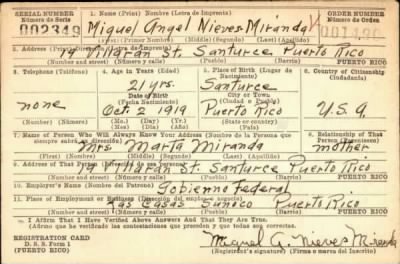 SERIAL NUMBER 1. Name (Print) Nombre (Letra de Imprenta) ORDER NUMBER
Número de Serie Número de Orden
002349 Miguel Angel Nieves Miranda
(First) (Primer Nombre) (Middle) (Segundo) (Last) (Apellido)
2. Address (Print) Dirección (Letra de Imprenta)
19 Villarán St. Santurce Puerto Rico
(Number and street) (Número y calle) (Town) (Ciudad o Pueblo) PUERTO RICO
3. Telephone (Teléfono) 4. Age in Years (Edad) 5. Place of Birth (Lugar de Nacimiento) 6. Country of Citizenship (Ciudadanía)
21 yrs. Santurce
Date of Birth (Fecha Nacimiento) City or Town (Ciudad o Pueblo)
none Oct. 2 1919 Puerto Rico U.S.A
(Mo.) (Mes) (Day) (Día) (Yr.) (Año) (State or country)
7. Name of Person Who Will Always Know Your Address (Nombre de la Persona que siempre sabrá su dirección) 8. Relationship of That Person (Parentesco)
Mrs. Marta Miranda mother
(First) (Nombre) (Middle) (Segundo) (Last) (Apellido)
9. Address of That Person (Dirección de esa persona)
19 Villarán St. Santurce Puerto Rico
(Number and street) (Número y calle) (Town) (Ciudad o Pueblo) PUERTO RICO
10. Employer's Name (Nombre del Patrono)
Gobierno Federal
11. Place of Employment or Business (Dirección del empleo o negocio)
Las Casas Puerto Rico
(Number and street) (Número y calle) (Town) (Ciudad o Pueblo) PUERTO RICO
I Affirm That I Have Verified Above Answers And That They Are True.
(Afirmo que he verificado las contestaciones que preceden y que todas son correctas.
REGISTRATION CARD
D. S. S. Form 1
(PUERTO RICO)
Miguel A. Nieves Miranda
(Registrant's signature) (Firma o marca del Inscrito)